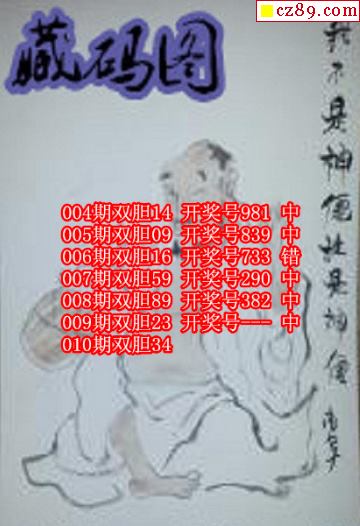 cz89.com
藏码图
我不是神仙
谁是神仙
004期双胆14 开奖号981 中
005期双胆09 开奖号839 中
006期双胆16 开奖号733 错
007期双胆59 开奖号290 中
008期双胆89 开奖号382 中
009期双胆23 开奖号--- 中
010期双胆34